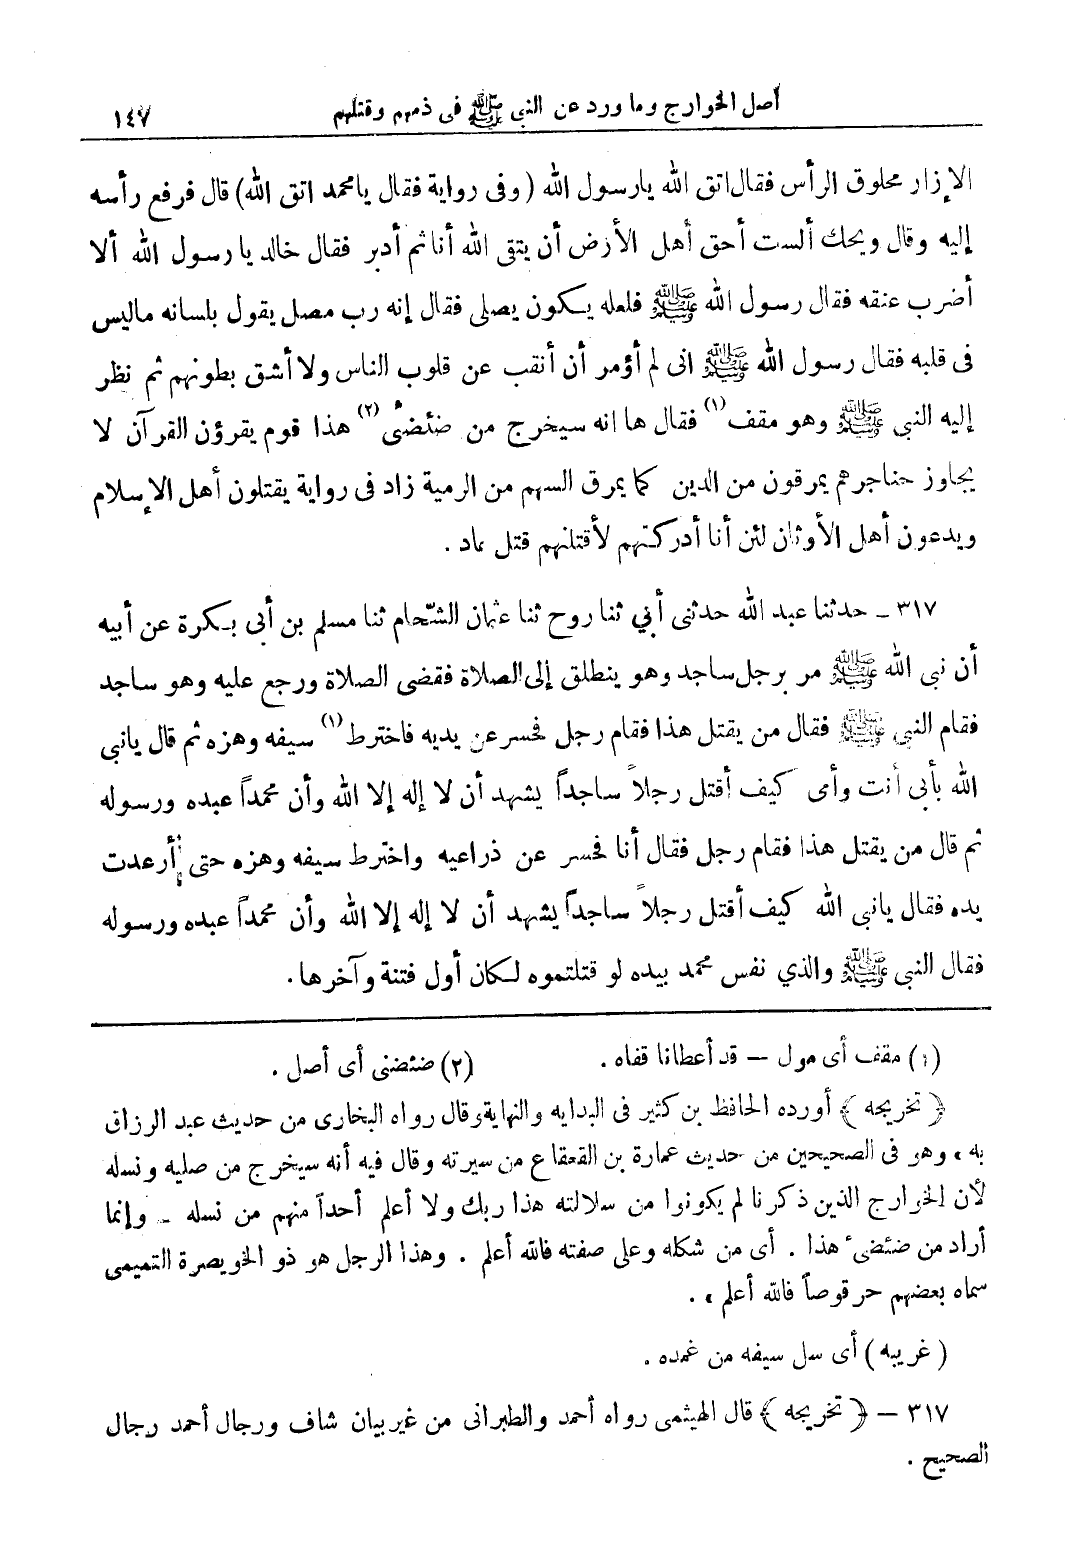 أصل الخوارج وما ورد عن النبي ﷺ فى ذمهم وقتلهم ١٤٧
الإزار محلوق الرأس فقال اتق الله يارسول الله (وفى رواية فقال يامحمد اتق الله) قال فرفع رأسه
إليه وقال ويحك ألست أحق أهل الأرض أن يتقى الله أنا ثم أدبر فقال خالد يا رسول الله ألا
أضرب عنقه فقال رسول الله ﷺ فلعله يكون يصلى فقال إنه رب مصل يقول بلسانه ماليس
فى قلبه فقال رسول الله ﷺ انى لم أؤمر أن أنقب عن قلوب الناس ولا أشق بطونهم ثم نظر
إليه النبي ﷺ وهو مقف (١) فقال ها انه سيخرج من ضئضئ (٢) هذا قوم يقرؤن القرآن لا
يجاوز حناجرهم يمرقون من الدين كما يمرق السهم من الرمية زاد فى رواية يقتلون أهل الإسلام
ويدعون أهل الأوثان لئن أنا أدركتهم لأقتلنهم قتل عاد .
٣١٧ ـ حدثنا عبد الله حدثنى أبي ثنا روح ثنا عثمان الشحّام ثنا مسلم بن أبى بكرة عن أبيه
أن نبى الله ﷺ مر برجل ساجد وهو ينطلق إلى الصلاة فقضى الصلاة ورجع عليه وهو ساجد
فقام النبي ﷺ فقال من يقتل هذا فقام رجل فحسر عن يديه فاخترط (١) سيفه وهزه ثم قال يانبى
الله بأبى أنت وأمى كيف أقتل رجلاً ساجداً يشهد أن لا إله إلا الله وأن محمداً عبده ورسوله
ثم قال من يقتل هذا فقام رجل فقال أنا فحسر عن ذراعيه واخترط سيفه وهزه حتى أرعدت
يده فقال يانبى الله كيف أقتل رجلاً ساجداً يشهد أن لا إله إلا الله وأن محمداً عبده ورسوله
فقال النبي ﷺ والذي نفس محمد بيده لو قتلتموه لكان أول فتنة وآخرها.
(١) مقف أى مول — قد أعطانا قفاه . (٢) ضئضئى أى أصل .
﴿ تخريجه ﴾ أورده الحافظ بن كثير فى البدايه والنهاية وقال رواه البخارى من حديث عبد الرزاق
به ، وهو فى الصحيحين من حديث عمارة بن القعقاع من سيرته وقال فيه أنه سيخرج من صلبه ونسله
لأن الخوارج الذين ذكرنا لم يكونوا من سلالته هذا ربك ولا أعلم أحداً منهم من نسله ـ وإنما
أراد من ضئضىء هذا . أى من شكله وعلى صفته فالله أعلم . وهذا الرجل هو ذو الخويصرة التميمى
سماه بعضهم حرقوصاً فالله أعلم ، .
( غريبه ) أى سل سيفه من غمده .
٣١٧ — ﴿ تخريجه ﴾ قال الهيثمى رواه أحمد والطبرانى من غير بيان شاف ورجال أحمد رجال
الصحيح .